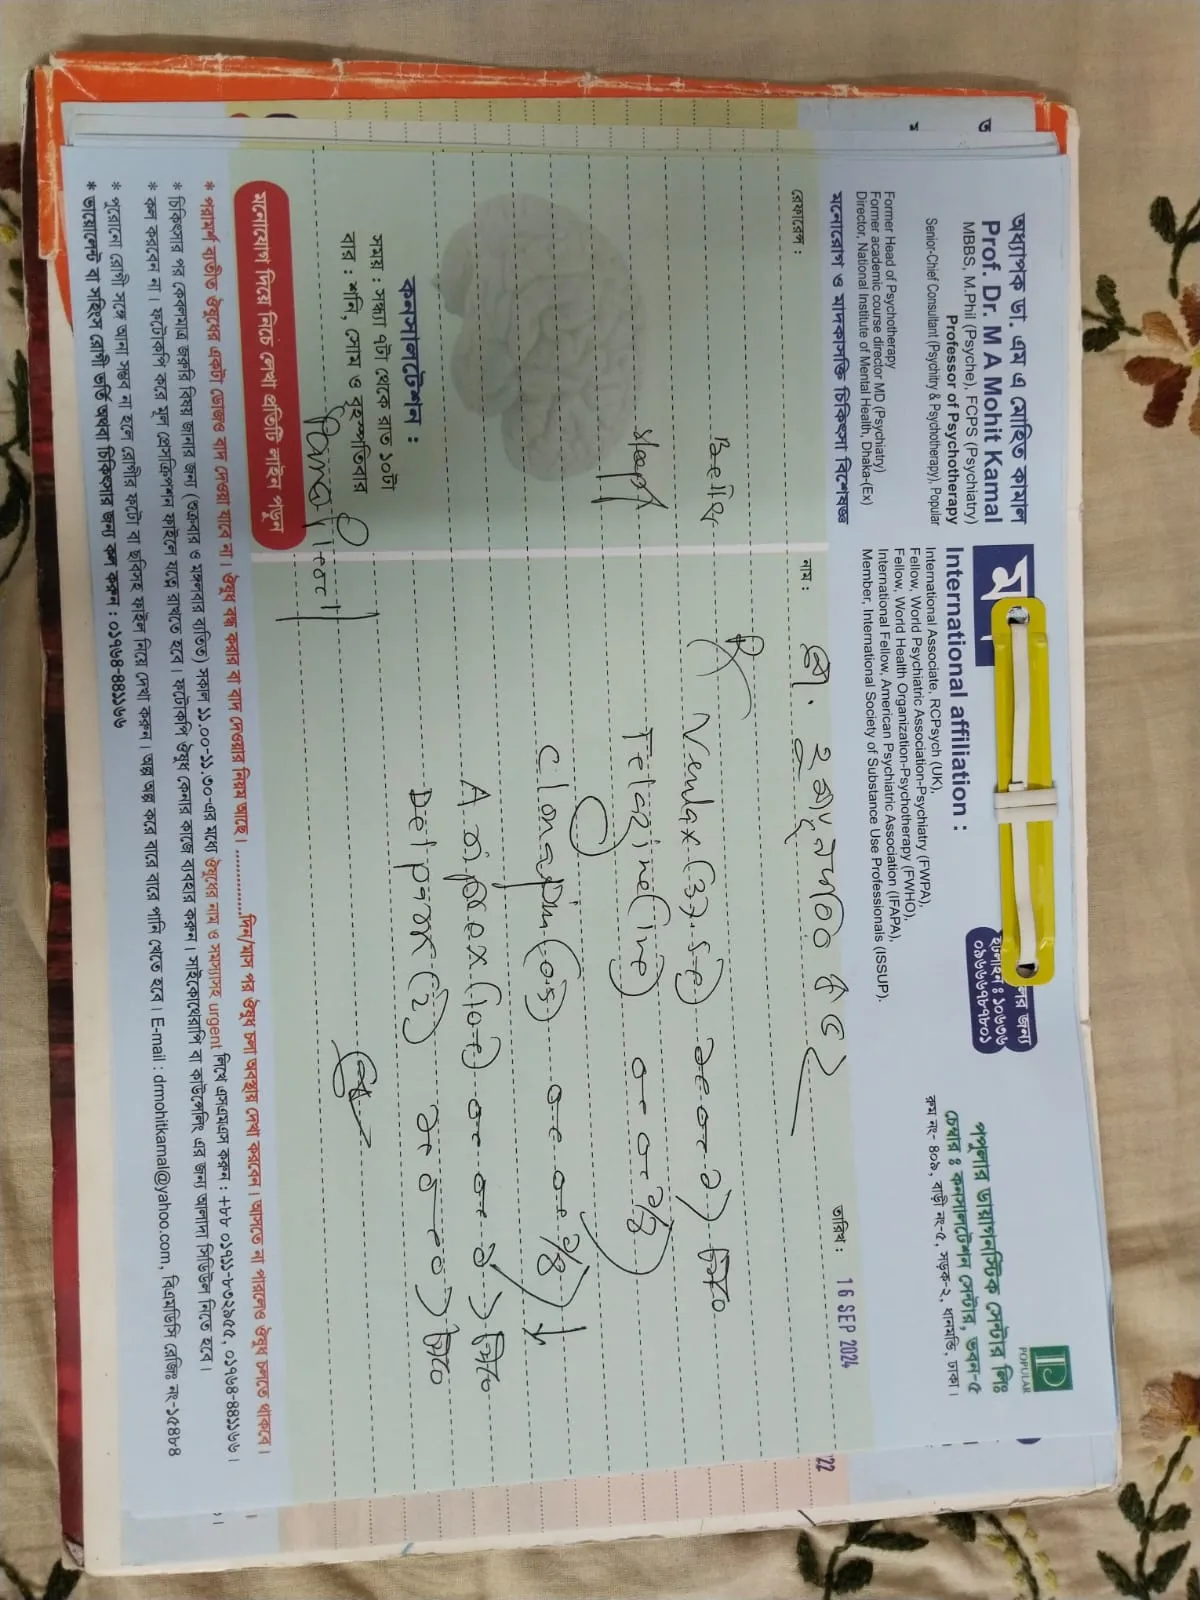 অধ্যাপক ডা. এম এ মোহিত কামাল
Prof. Dr. M A Mohit Kamal
MBBS, M.Phil (Psyche), FCPS (Psychiatry)
Professor of Psychotherapy
Senior-Chief Consultant (Psychitry & Psychotherapy), Popular
Former Head of Psychotherapy
Former academic course director MD (Psychiatry)
Director, National Institute of Mental Health, Dhaka-(Ex)
মনোরোগ ও মাদকাসক্তি চিকিৎসা বিশেষজ্ঞ
International affiliation :
International Associate, RCPsych (UK),
Fellow, World Psychiatric Association-Psychiatry (FWPA),
Fellow, World Health Organization-Psychotherapy (FWHO),
International Fellow, American Psychiatric Association (IFAPA),
Member, International Society of Substance Use Professionals (ISSUP).
লের জন্য
হটলাইন : ১০৬৩৬
০৯৬৬৬৭৮৭৮০১
POPULAR
পপুলার ডায়াগনস্টিক সেন্টার লিঃ
চেম্বার : কনসালটেশন সেন্টার, ভবন-৫
রুম নং- ৪০৯, বাড়ী নং-৫, সড়ক-২, ধানমন্ডি, ঢাকা।
রেফারেন্স :
নাম :
তারিখ : 16 SEP 2024
22
Better
sleep
Rx
Venlax (37.5)
Telazine
Clonapin (0.5)
Arpolex (10)
Delpanx (2)
কনসালটেশন :
সময় : সন্ধ্যা ৭টা থেকে রাত ১০টা
বার : শনি, সোম ও বৃহস্পতিবার
মনোযোগ দিয়ে নিচে লেখা প্রতিটি লাইন পড়ুন
* পরামর্শ ব্যতীত ঔষুধের একটা ডোজও বাদ দেওয়া যাবে না। ঔষুধ বন্ধ করার বা বাদ দেওয়ার নিয়ম আছে। ..............দিন/মাস পর ঔষুধ চলা অবস্থায় দেখা করবেন। আসতে না পারলেও ঔষুধ চলতে থাকবে।
* চিকিৎসার পর কেবলমাত্র জরুরি বিষয় জানার জন্য (শুক্রবার ও মঙ্গলবার ব্যতিত) সকাল ১১.০০-১১.৩০-এর মধ্যে ঔষুধের নাম ও সমস্যাসহ urgent লিখে এসএমএস করুন : +৮৮ ০১৭১১-৮৩২৯৫৫, ০১৭৬৪-৪৪১১৬৬।
* কল করবেন না। ফটোকপি করে মূল প্রেসক্রিপশন ফাইলে যত্নে রাখতে হবে। ফটোকপি ঔষুধ কেনার কাজে ব্যবহার করুন। সাইকোথেরাপি বা কাউন্সেলিং এর জন্য আলাদা সিডিউল নিতে হবে।
* পুরোনো রোগী সঙ্গে আনা সম্ভব না হলে রোগীর ফটো বা ছবিসহ ফাইল নিয়ে দেখা করুন। অল্প অল্প করে বারে বারে পানি খেতে হবে। E-mail : drmohitkamal@yahoo.com, বিএমডিসি রেজিঃ নং-১৫৪৮৪
* ভায়োলেন্ট বা সহিংস রোগী ভর্তি অথবা চিকিৎসার জন্য কল করুন : ০১৭৬৪-৪৪১১৬৬